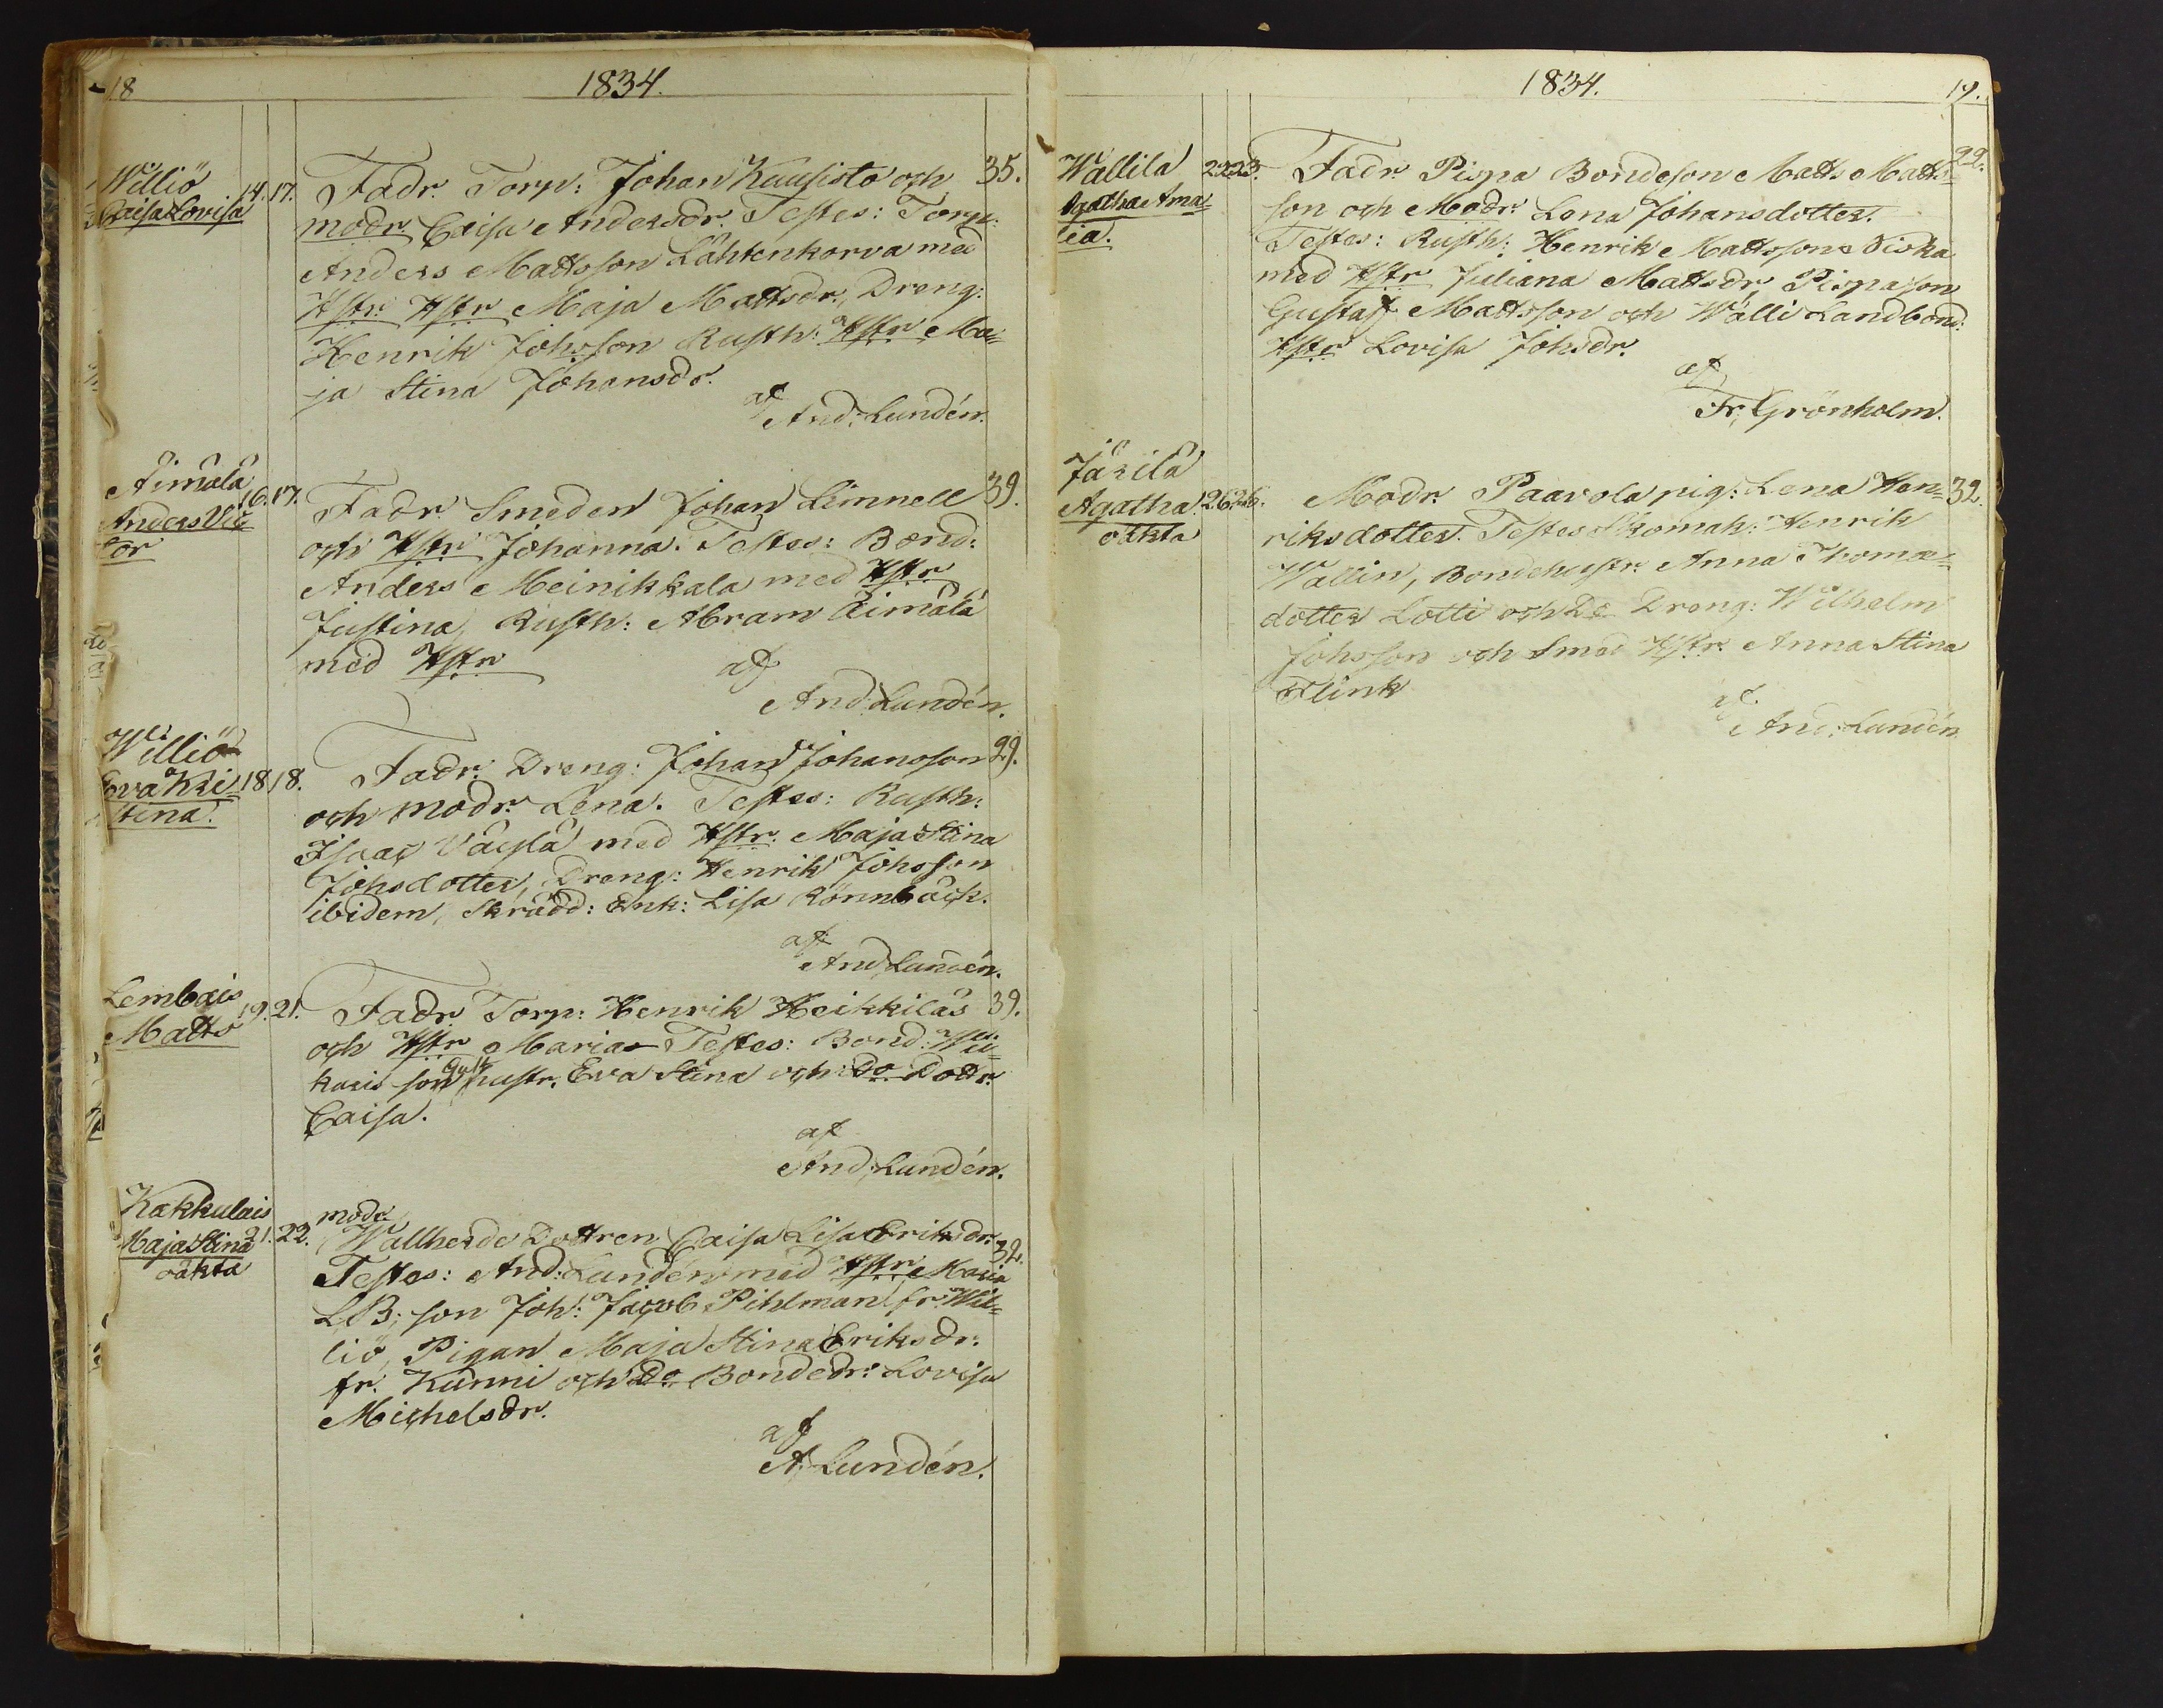 18
1834.
Williö
Caisa Lovisa
14. 17.
Fadr. Torp: Johan Kuusisto och
35.
modr Caisa Andersdr. Testes: Torp:
Anders Mattsson Lähtenkorva med
Hstr: Hstr Maja Mattsdr, Dreng:
Henrik Johsson Rusth: Hstr Ma=
ja Stina Johansdr.
af
And: Lundén.
Äimälä
Anders Vic
tor
16. 17.
Fadr. Smeden Johan Limnell
39.
och Hstr Johanna. Testes: Bond:
Anders Heinikkala med Hstr
Justina, Rusth: Abram Äimälä
med Hstr
af
And: Lundén.
Williö
Eva Kri
stina.
18 18.
Fadr. Dreng: Johan Johansson
29.
och modr. Lena. Testes: Rusth:
Isaac Väylä med Hstr: Maja Stina
Johsdotter, Dreng: Henrik Johsson
ibidem, Skrädd: Enk: Lisa Rönnbäck.
af
And: Lundén.
Lembois
Matts
19. 21.
Fadr. Torp: Henrik Heikkiläs
39.
och Hstr Maria Testes: Bond:
son hustr. Eva Stina och Do Dottr.
Caisa.
af
And: Lundén.
Kakkulais
Maja Stina
oäkta
21. 22.
modr
Wallherde Dottren Caisa Lisa Eriksdr.
32.
Testes: And: Lundén med Hstr Maria
LB; son Joh: Jacob Pihlman fr. Wil=
liö, Pigan Maja Stina Eriksdr.
fr. Kunni och Do Bondedr: Lovisa
Michelsdr.
af
A. Lundén.
1834.
19.
Wallila
Agatha Ama=
lia.
23.
Fadr. Pispa Bondeson Matts Matts=
22.
son och Modr. Lena Johansdotter.
Testes: Rusth: Henrik Mattsson Siska
med Hstr Juliana Mattsdr, Pispason
Gustaf Mattsson och Wälli Landbond:
Hstr Lovisa Johsdr.
af
Fr. Grönholm.
Järilä
Agatha
oäkta
26. 26.
Modr. Paavola pig: Lena Hen=
32.
riksdotter. Testes: Skomak: Henrik
Wallin, Bondehustr. Anna Thomæ=
dotter Lotti och Do Dreng: Wilhelm
Johsson och Smed Hstr. Anna Stina
Flink
af
And: Lundén